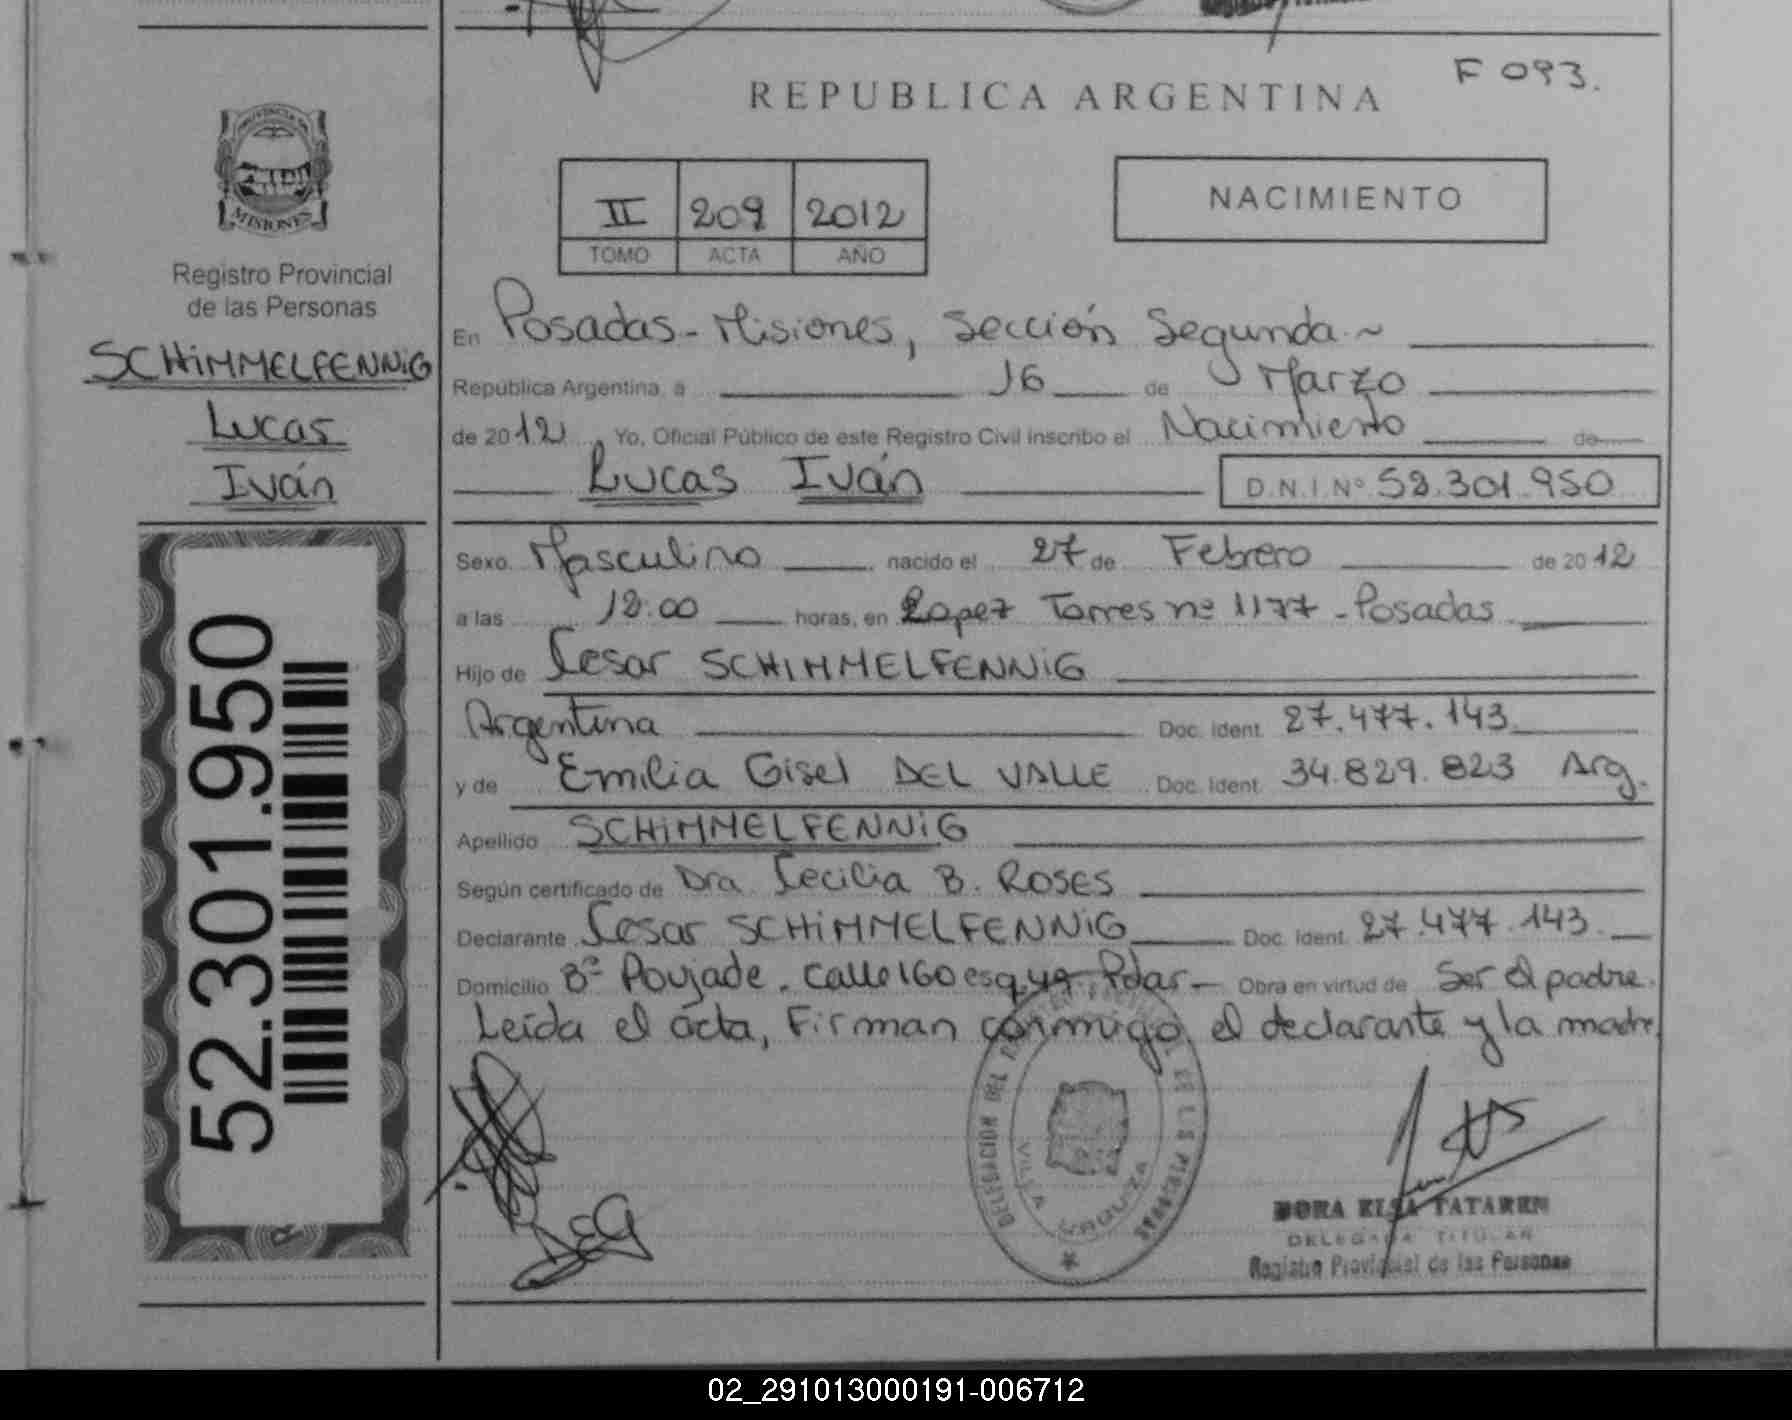 F 093.
REPUBLICA ARGENTINA
PROVINCIA DE
MISIONES
Registro Provincial
de las Personas
SCHIMMELFENNIG
Lucas
Iván
52.301.950
II 209 2012
TOMO ACTA AÑO
NACIMIENTO
En Posadas - Misiones, Sección Segunda.~
República Argentina, a 16 de Marzo
de 2012 Yo, Oficial Público de este Registro Civil inscribo el Nacimiento de
Lucas Iván D.N.I.Nº 52.301.950
Sexo Masculino nacido el 27 de Febrero de 2012
a las 12:00 horas, en Lopez Torres nº 1177 - Posadas
Hijo de Cesar SCHIMMELFENNIG
Argentina Doc. Ident. 27.477.143
y de Emilia Gisel DEL VALLE Doc. Ident. 34.829.823 Arg.
Apellido SCHIMMELFENNIG
Según certificado de Dra. Cecilia B. ROSES
Declarante Cesar SCHIMMELFENNIG Doc. Ident. 27.477.143.
Domicilio Bº Poujade. Calle 160 esq. 49 - Pdas - Obra en virtud de Ser el padre.
Leída el acta, Firman conmigo, el declarante y la madre
DELEGACION DEL DE LAS PERSONAS
VILLA
DORA ELSA TATAREN
DELEGADA TITULAR
Registro Provincial de las Personas
02_291013000191-006712